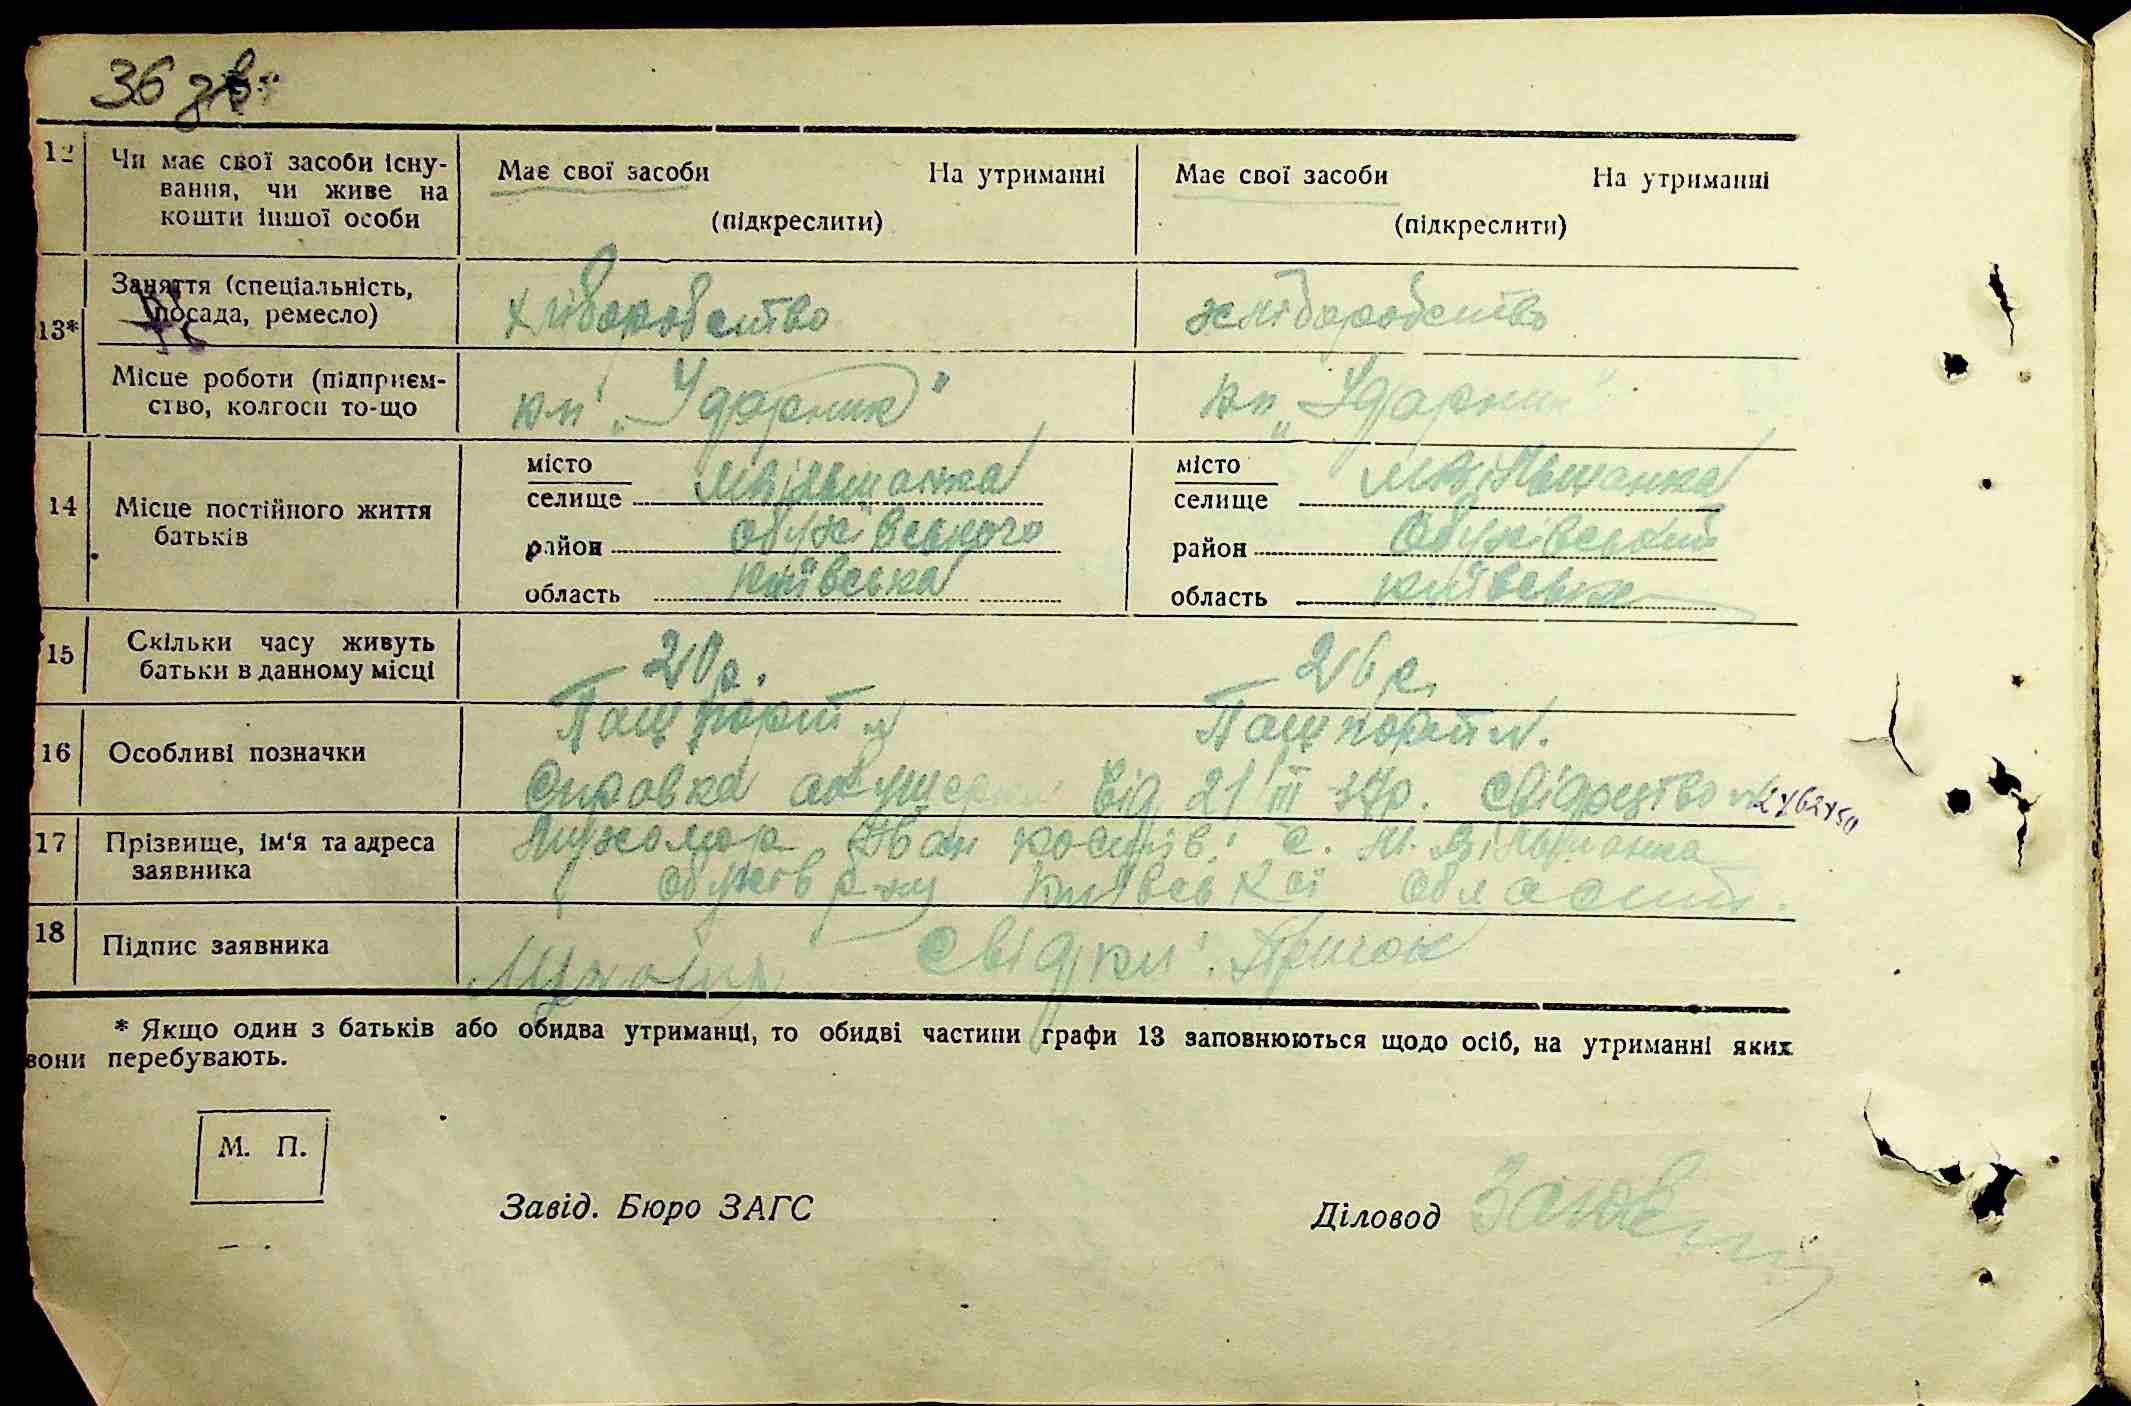 36 зв.
12 Чи має свої засоби існу- Має свої засоби На утриманні Має свої засоби На утриманні
вання, чи живе на
кошти іншої особи (підкреслити) (підкреслити)
Заняття (спеціальність,
посада, ремесло) хліборобство хліборобство
13*
Місце роботи (підприєм-
ство, колгосп то-що кп „Ударник" кп „Ударник"
місто місто
селище М Вільшанка селище М Вільшанка
14 Місце постійного життя
батьків район обухівського район Обухівський
область київська область київська
15 Скільки часу живуть
батьки в данному місці 20 р. 26 р.
Пашпорт Пашпорт
16 Особливі позначки
Справка від 21 III 37р. свідоцтво
17 Прізвище, ім'я та адреса Іван с. М. Вільшанка
заявника обухів р-ну Київської області.
18 Підпис заявника свідки:
* Якщо один з батьків або обидва утриманці, то обидві частини графи 13 заповнюються щодо осіб, на утриманні яких
вони перебувають.
М. П.
Завід. Бюро ЗАГС Діловод